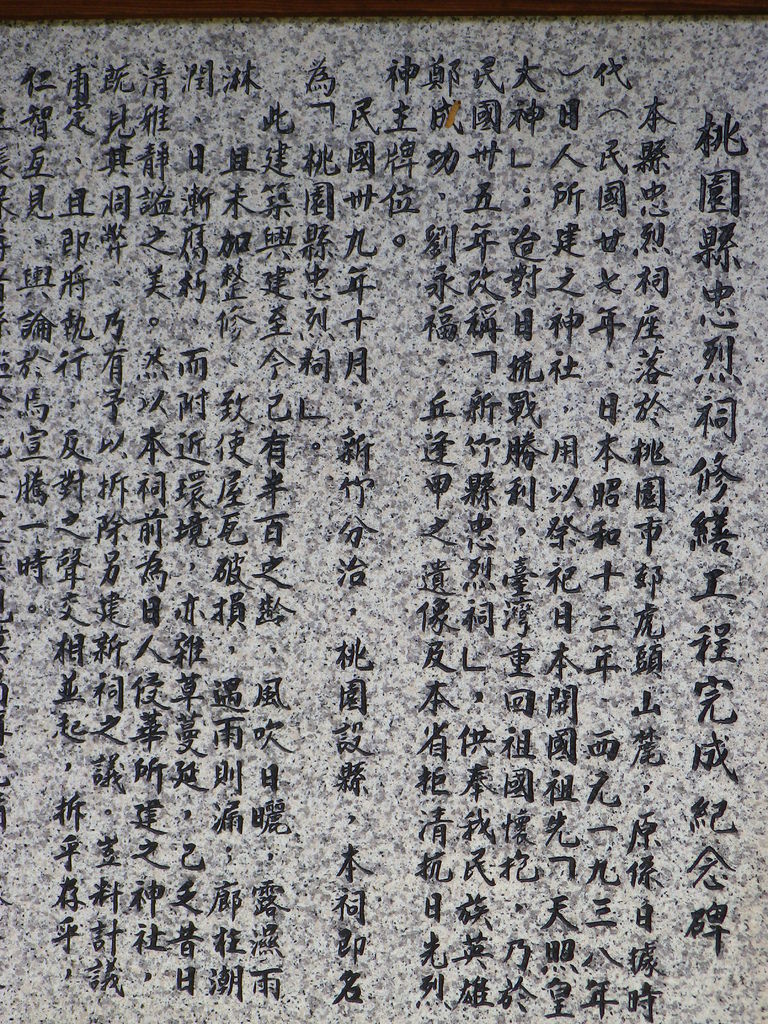 桃園縣忠烈祠修繕工程完成紀念碑
本縣忠烈祠座落於桃園市郊虎頭山麓，原係日據時
代（民國廿七年、日本昭和十三年、西元一九三八年
）日人所建之神社，用以祭祀日本開國祖先「天照皇
大神」；迨對日抗戰勝利，臺灣重回祖國懷抱，乃於
民國卅五年改稱「新竹縣忠烈祠」，供奉我民族英雄
鄭成功、劉永福、丘逢甲之遺像及本省拒清抗日先烈
神主牌位。
民國卅九年十月，新竹分治，桃園設縣，本祠即名
為「桃園縣忠烈祠」。
此建築興建至今已有半百之齡，風吹日曬，露濕雨
淋，且未加整修、致使屋瓦破損，遇雨則漏；廊柱潮
潤、日漸腐朽，而附近環境，亦雜草蔓延，已乏昔日
清雅靜謐之美。然以本祠前為日人侵華所建之神社，
既見其凋弊、乃有予以拆除另建新祠之議。豈料計議
甫定、且即將執行，反對之聲交相並起，拆乎存乎，
仁智互見，輿論於焉宣騰一時。